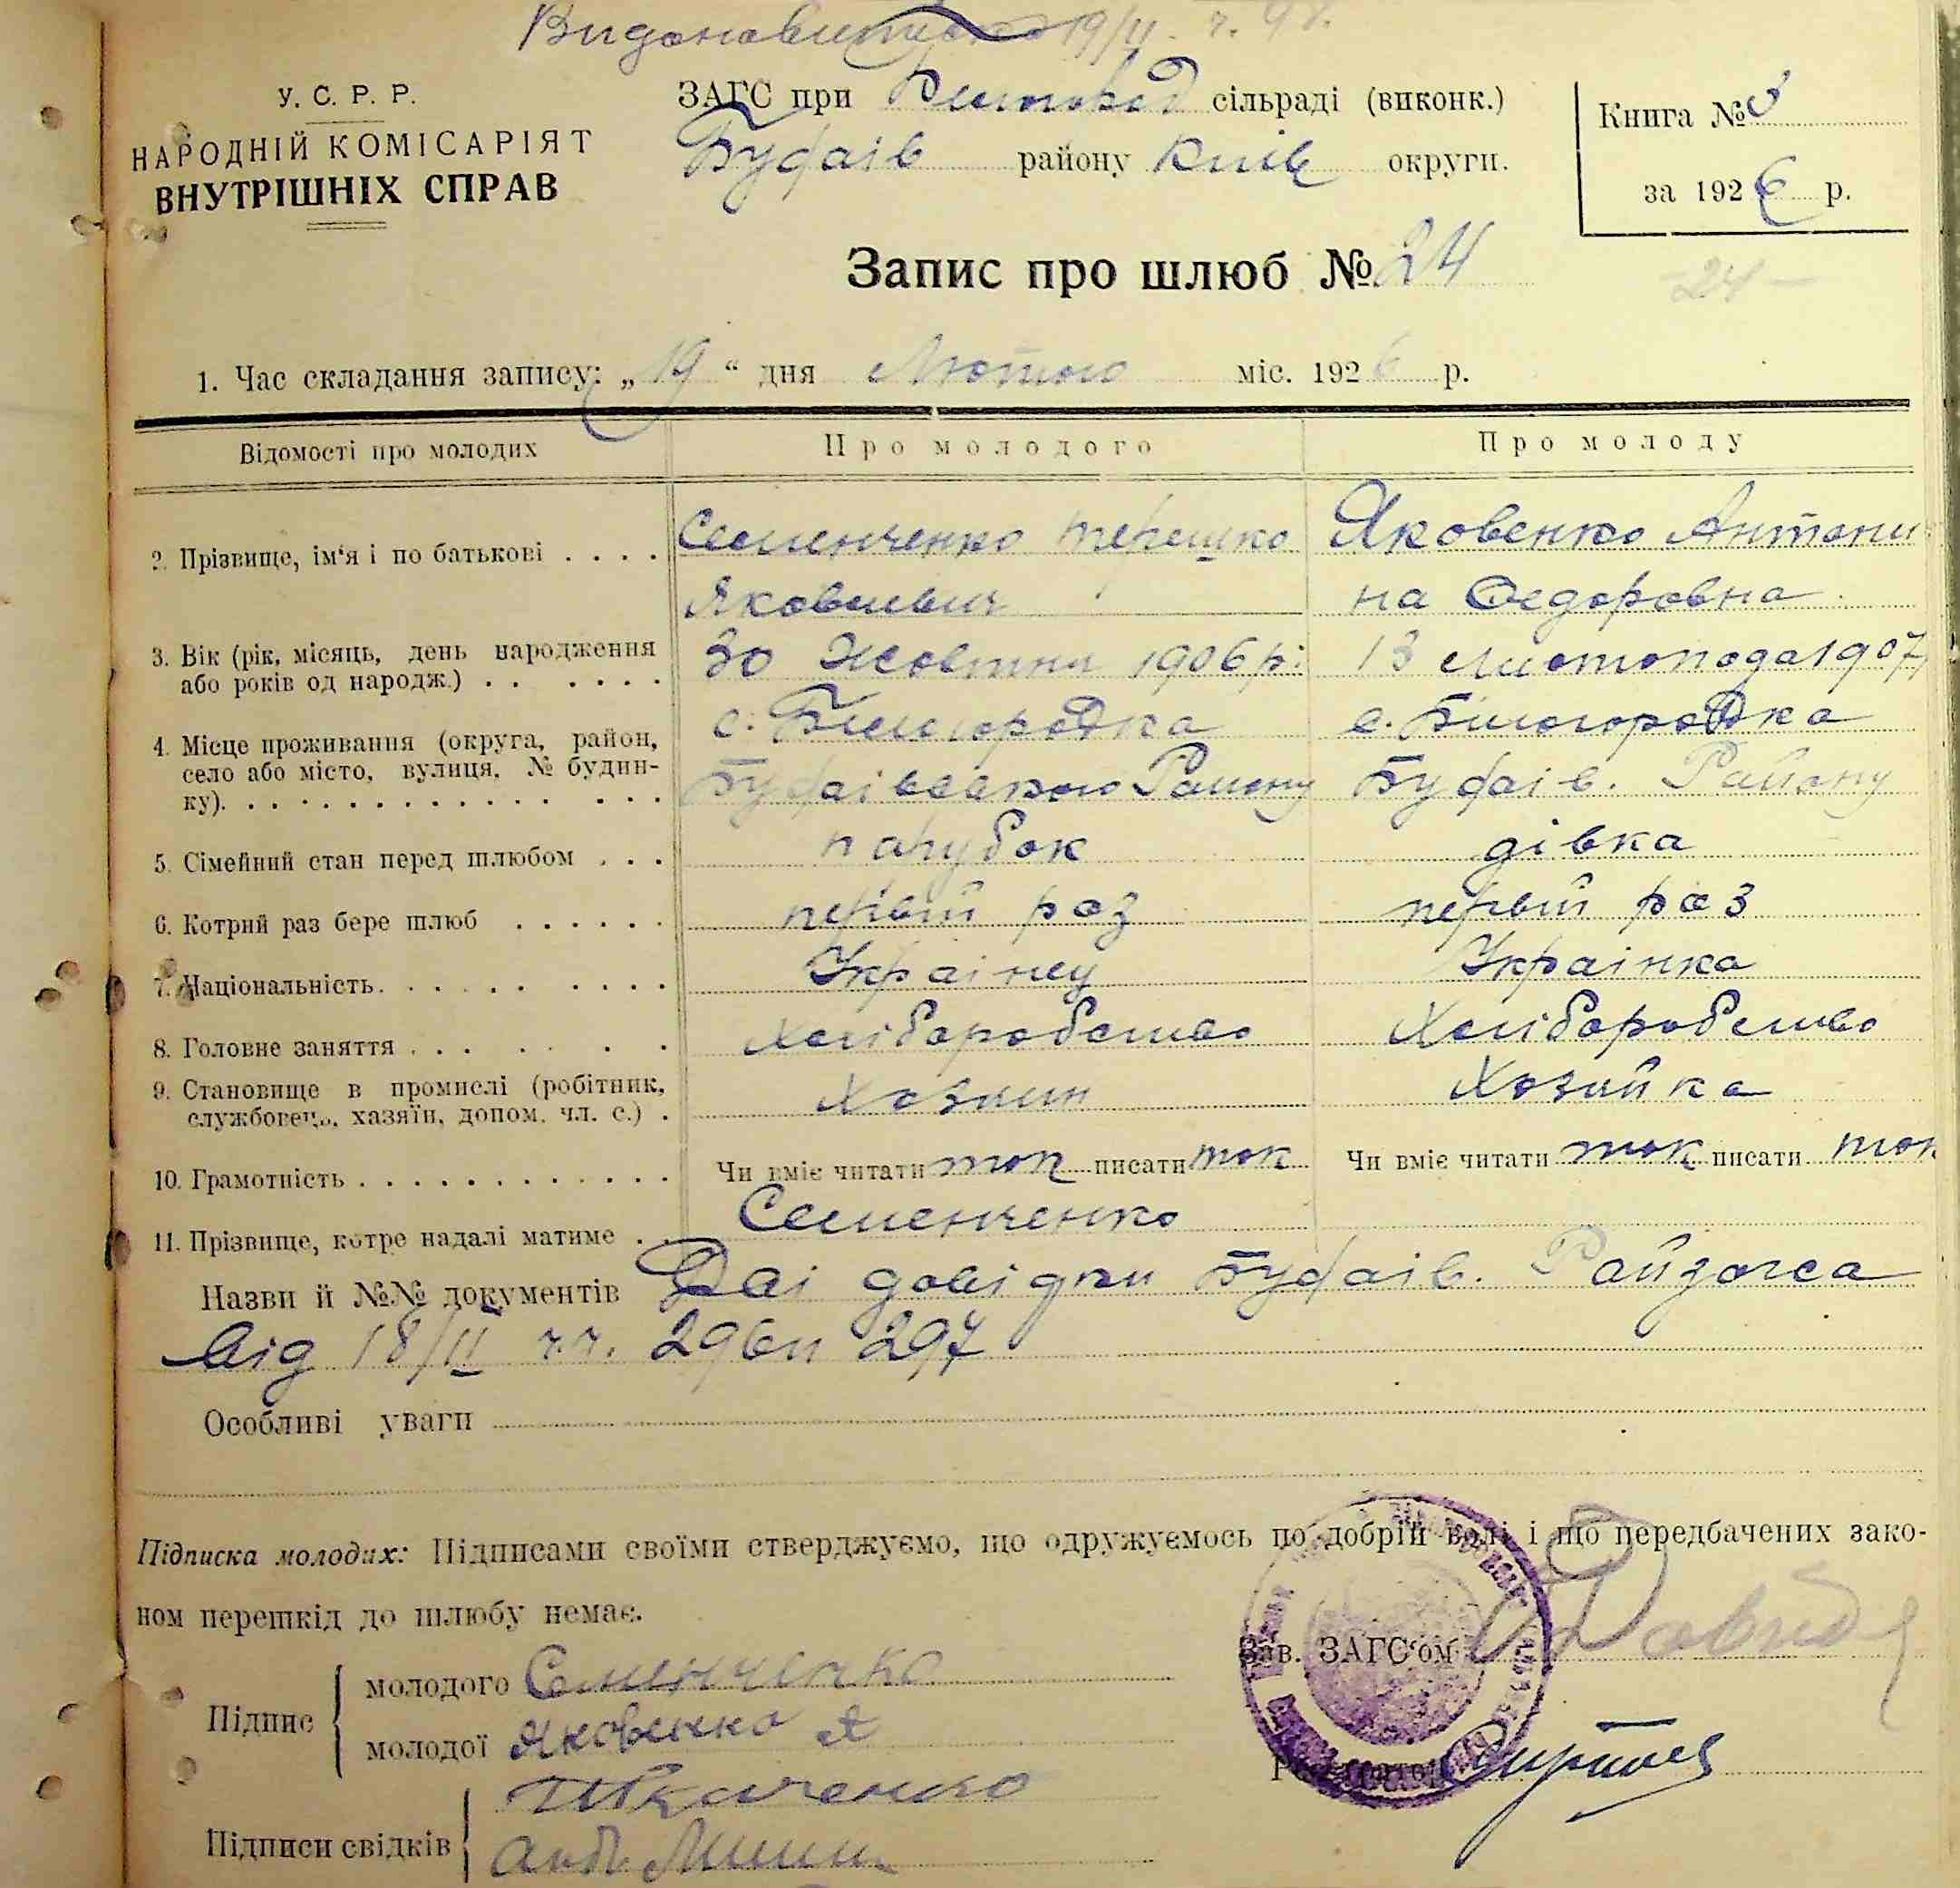 У. С. Р. Р.
НАРОДНІЙ КОМІСАРІЯТ
ВНУТРІШНІХ СПРАВ
ЗАГС при Білгород сільраді (виконк.)
Будаів району Київ округи.
Книга № 3
за 1926 р.
Запис про шлюб № 24
24
1. Час складання запису: „19“ дня Лютого міс. 1926 р.
Відомості про молодих Про молодого Про молоду
2. Прізвище, ім‘я і по батькові . . . . Семенченко Терешко Яковенко Антони
Яковлевич на Федоровна
3. Вік (рік, місяць, день народження 30 Жовтня 1906 р. 13 Листопода 1907
або років од народж.) . . . . . .
4. Місце проживання (округа, район, с. Білогородка с. Білогородка
село або місто, вулиця, № будин- Будаівського Району Будаів. Району
ку). . . . . . . . . . . . . . .
5. Сімейний стан перед шлюбом . . . парубок дівка
6. Котрий раз бере шлюб . . . . . . первый раз первый раз
7. Національність. . . . . . . . . . Украінец Украінка
8. Головне заняття . . . . . . . Хліборобство Хліборобство
9. Становище в промислі (робітник, Хозяин Хозяйка
службовець, хазяїн, допом. чл. с.) .
10. Грамотність . . . . . . . . . . . . . Чи вміє читати так писати так Чи вміє читати так писати так
11. Прізвище, котре надалі матиме . . Семенченко
Назви й №№ документів Дві довідки Будаів. Райзагса
від 18/II ч.ч. 296 и 297
Особливі уваги
Підписка молодих: Підписами своїми стверджуємо, що одружуємось по добрій волі і що передбачених зако-
ном перешкід до шлюбу немає.
Підпис
молодого Семенченко
молодої Яковенко А
Зав. ЗАГС‘ом
Реєстратор
Підписи свідків
Ткаченко